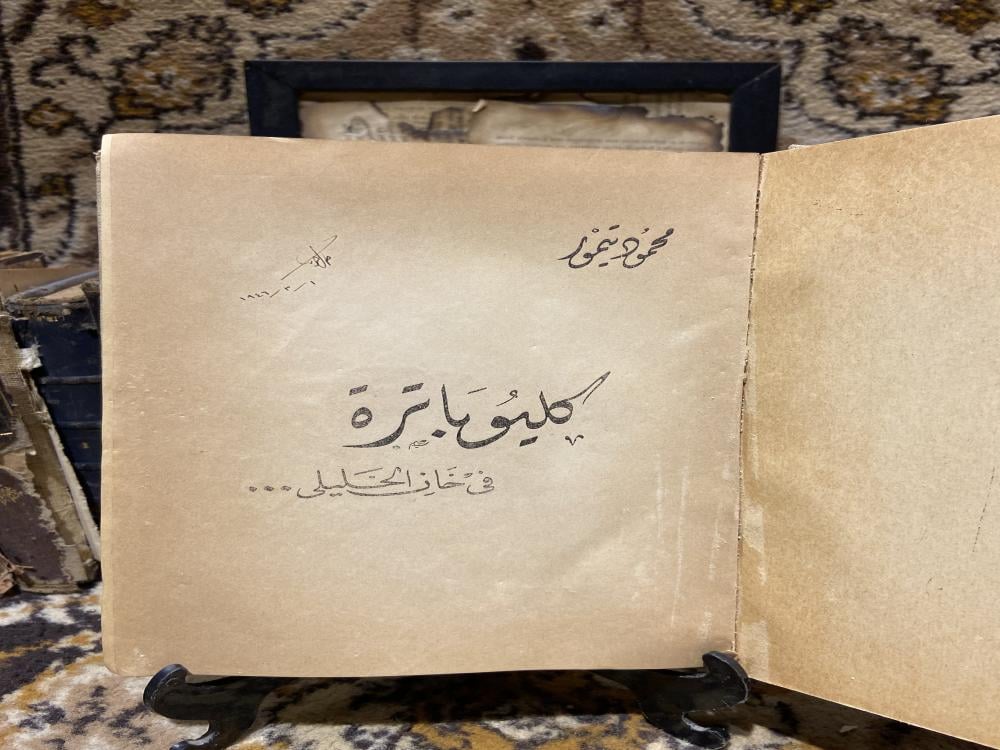 محمُود تيْمُور
١ / ٣ / ١٩٤٦
كليُوبَاترة
فى خَان الخَليلى...